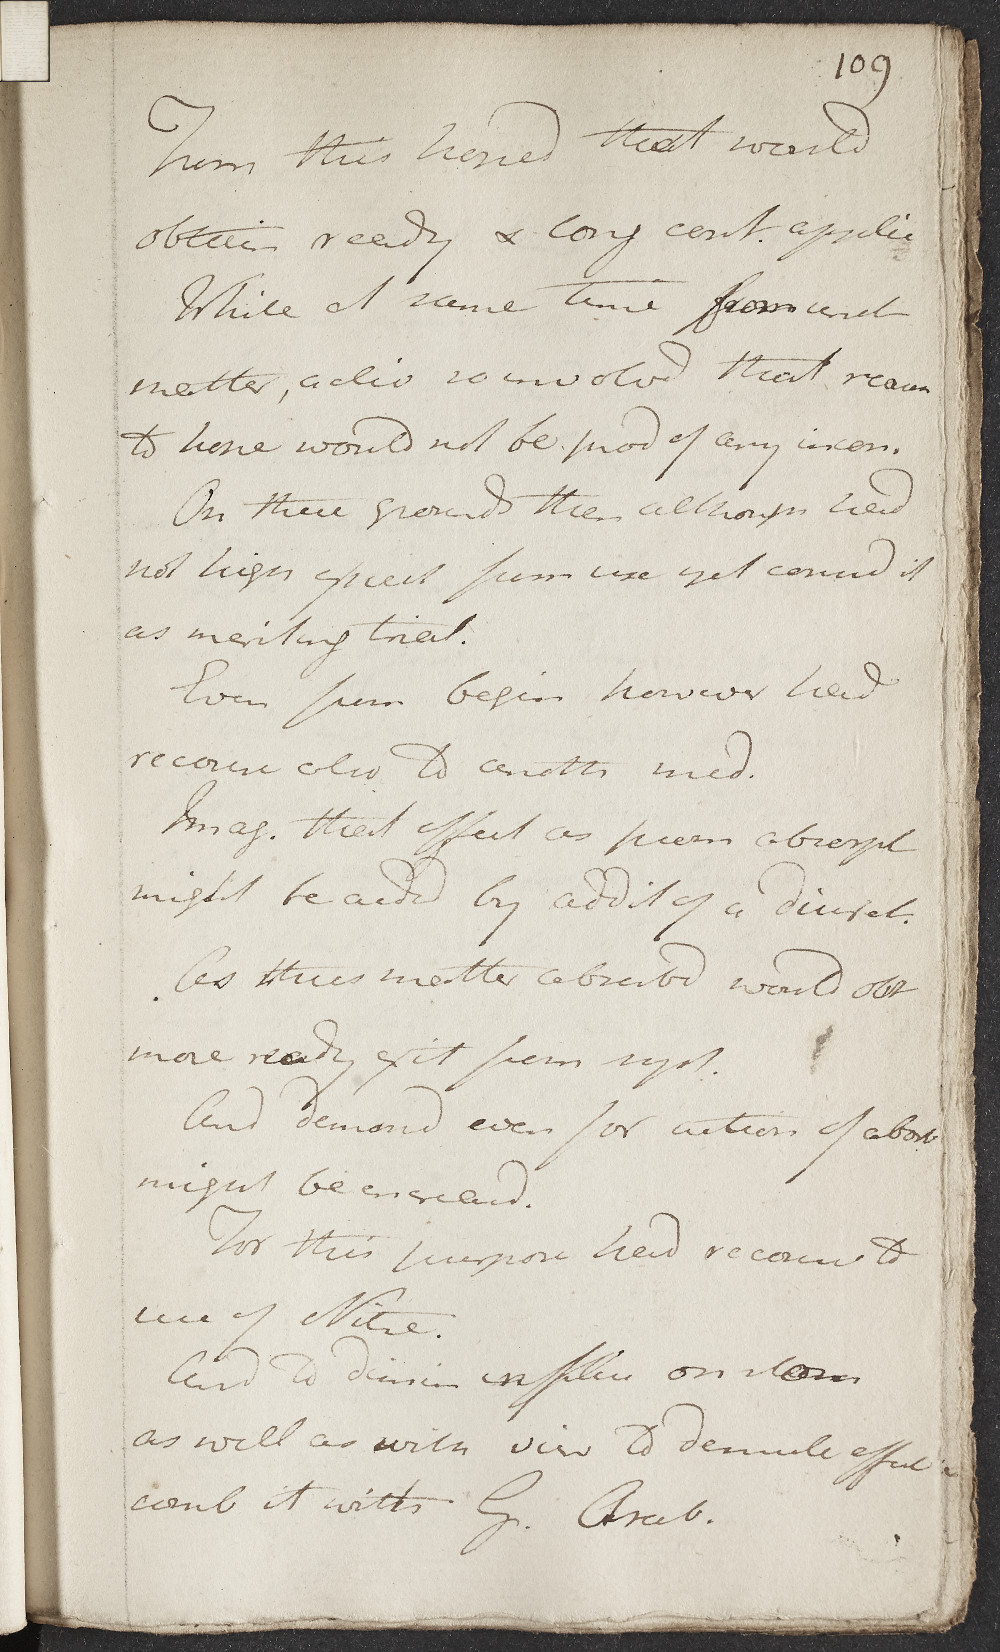 109
From this hoped that would
obtain ready & long cont. applic
While at same time from unct
matter, also so involvd that recourse
to hone would not be prod of any incon.
On these grounds then although had
not high expect from use yet consid it
as meriting trial.
Even from begin however had
recourse also to anoth med.
Imag. that effect as prom absorpt
might be aided by addit of a diuret.
As thus matter absorbd would obt
more ready exit from syst.
And demand even for action of absorb
might be increasd.
For this purpose had recourse to
use of Nitre.
And to dimin influ on stom
as well as with view to demulc effect
comb it with G. Arab.